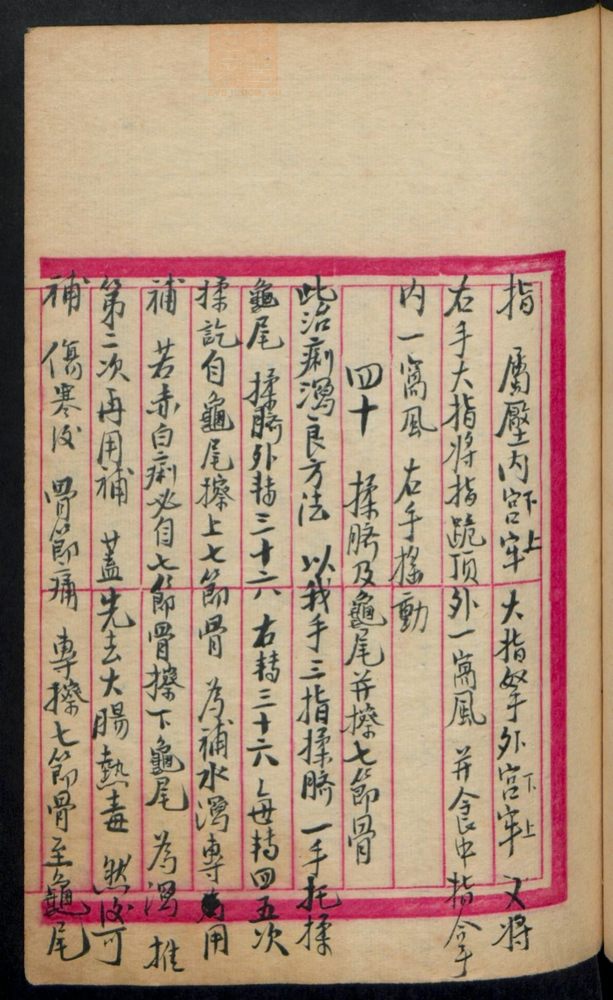 指 屬壓內宮下上牢 大指拏手外宮下上牢 又將
右手大指將指跪頂外一窩風 并食中指拿手
內一窩風 右手搖動
四十 揉臍及龜尾并擦七節骨
此治痢瀉良方法 以我手三指揉臍 一手托揉
龜尾 揉臍外轉三十六 右轉三十六 每轉四五次
揉訖自龜尾擦上七節骨 為補水瀉專用
補 若赤白痢必自七節骨擦下龜尾 為瀉 推
第二次再用補 蓋先去大腸熱毒 然後可
補 傷寒後 骨節痛 專擦七節骨至龜尾